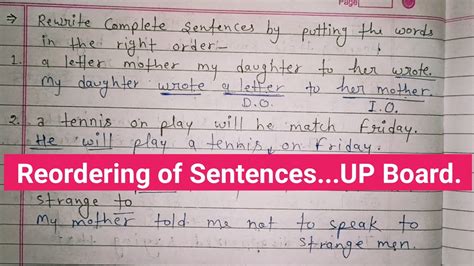 Page
⇒ Rewrite Complete Sentences by putting the words
in the right order—
1. a letter mother my daughter to her wrote.
My daughter wrote a letter to her mother.
D.O. I.O.
2. a tennis on play will he match Friday.
He will play a tennis on Friday.
Reordering of Sentences...UP Board.
strange to
My mother told me not to speak to
strange men.